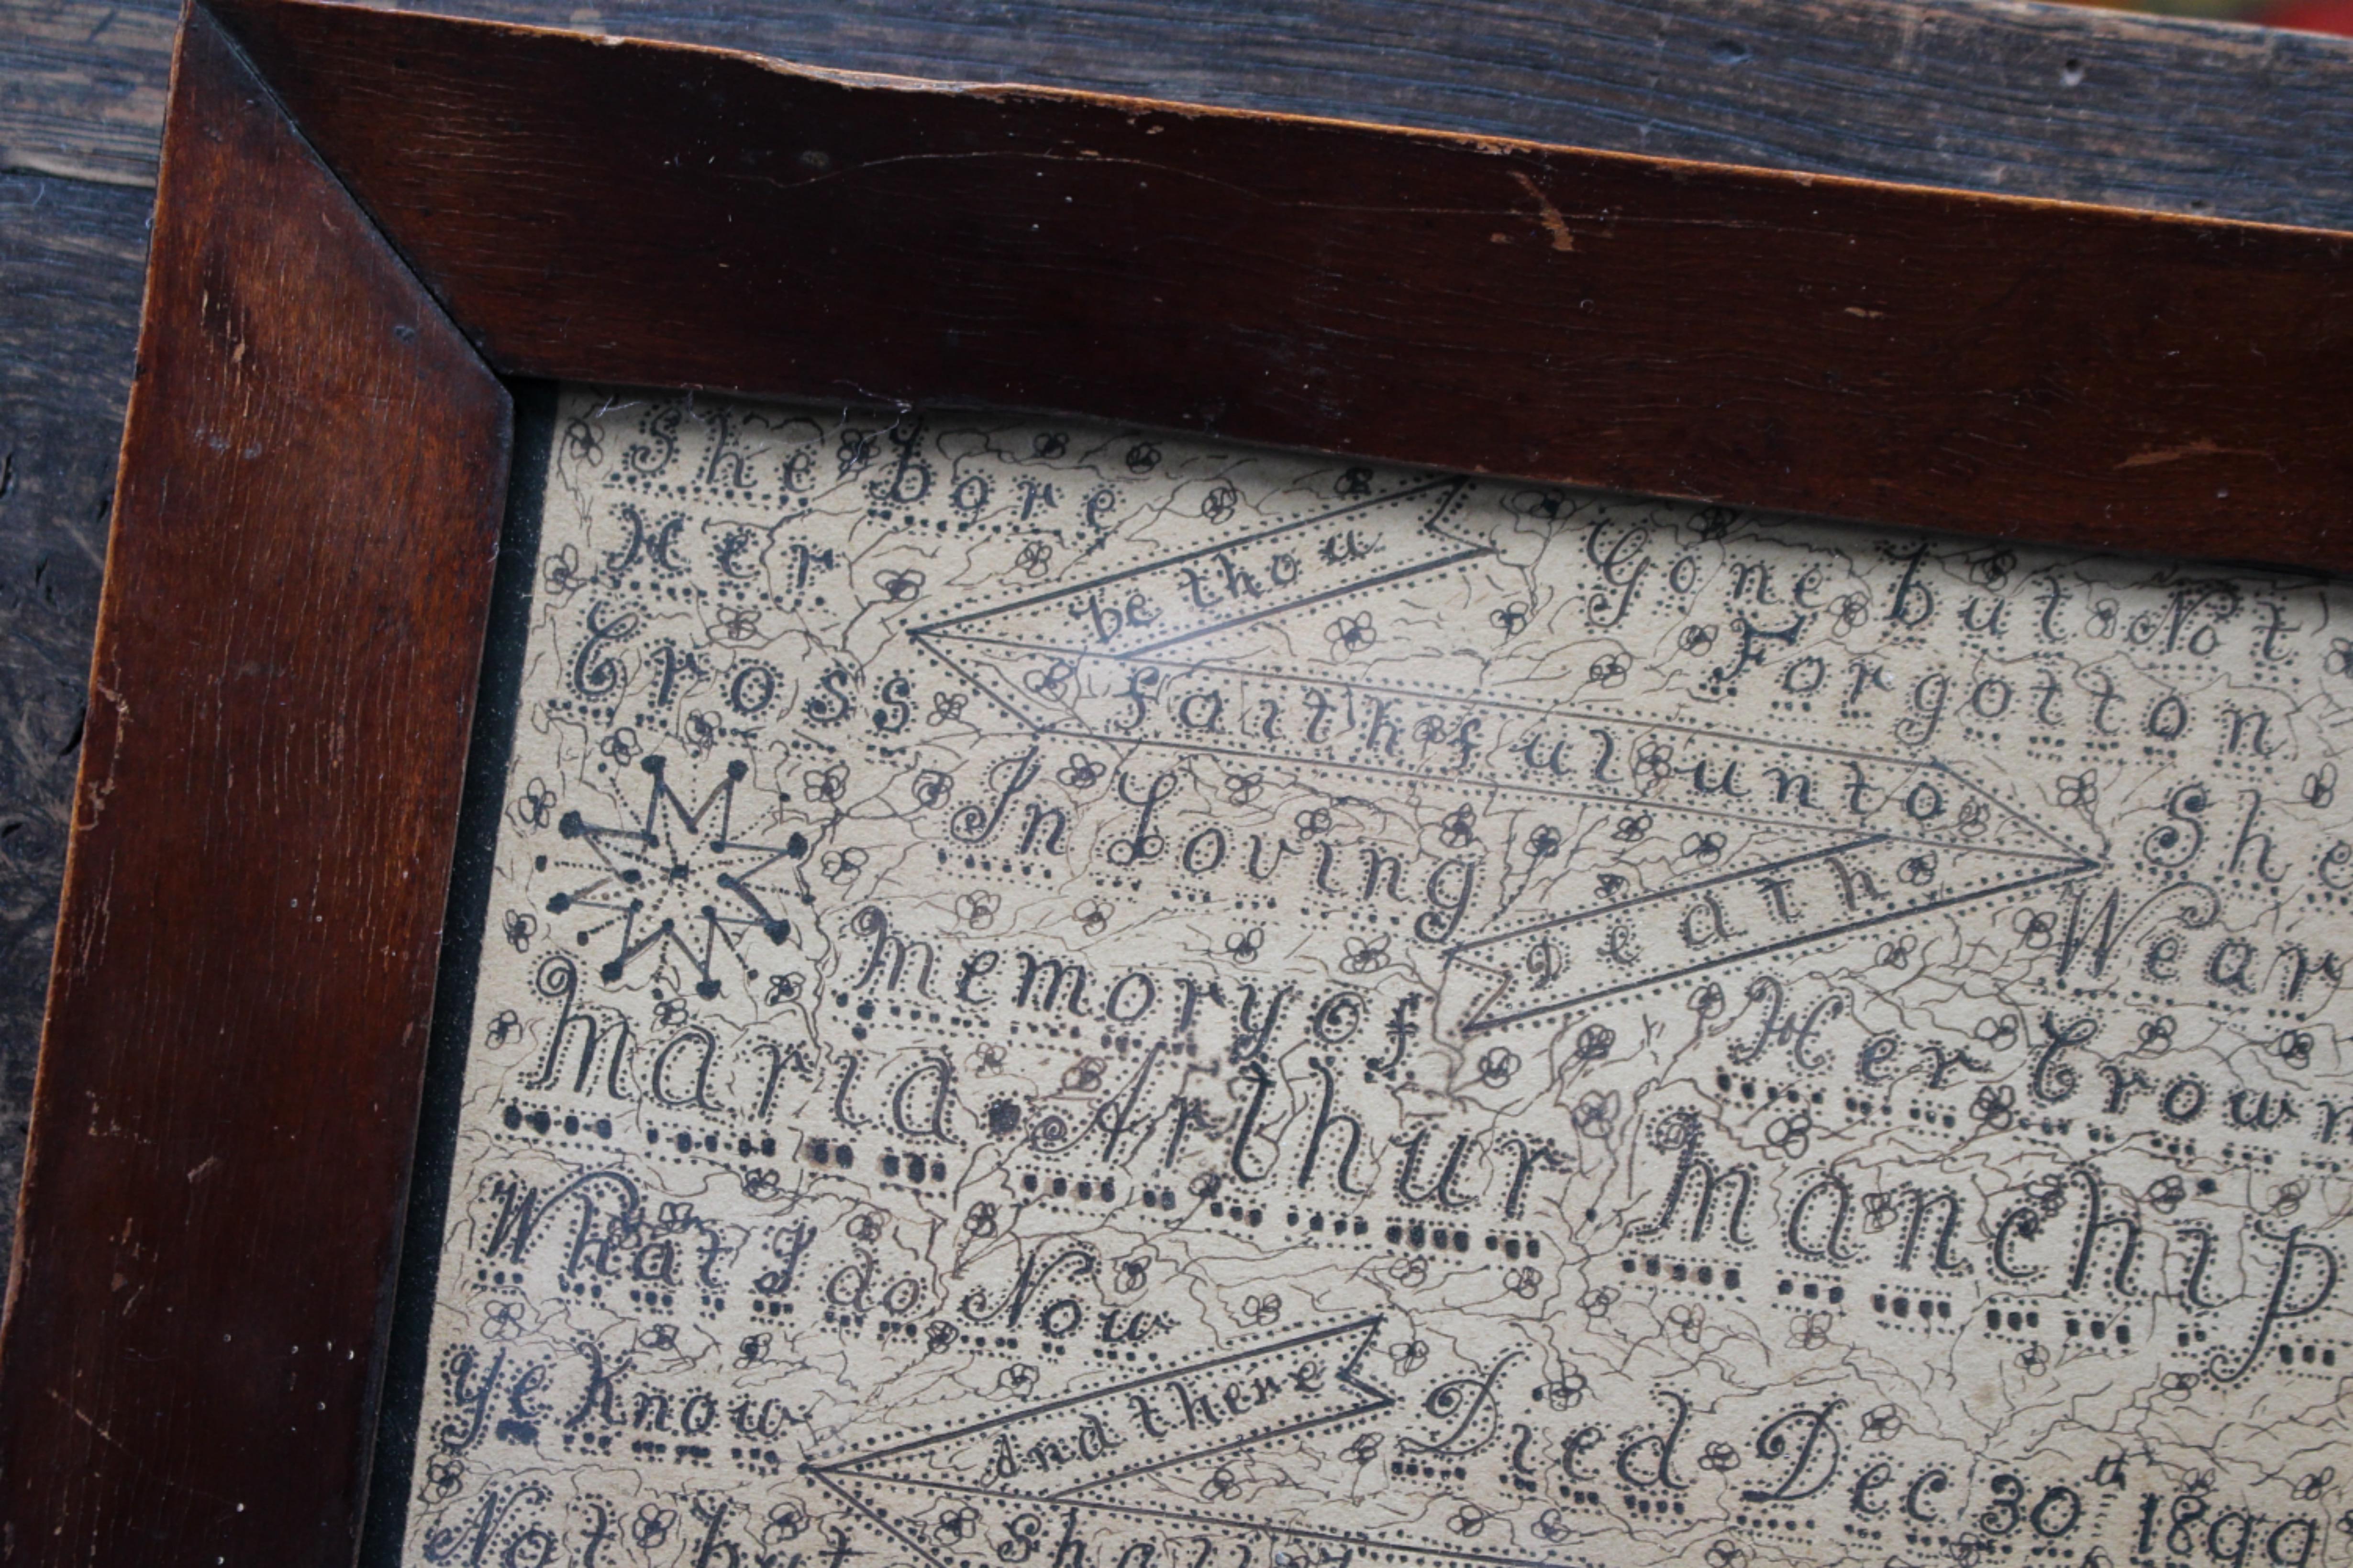 She bore
Her
Cross
be thou
faithful unto
Death
Gone but Not
Forgotton
She
Wear
Her Crown
In Loving
Memory of
Maria Arthur Manchip
What I do Now
Ye Know
Not but
And there
Shall
Died Dec 30th 1899